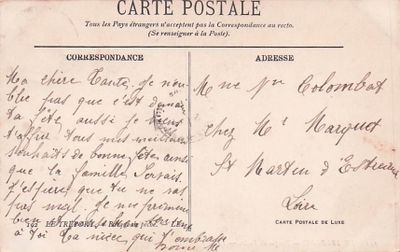 CARTE POSTALE
Tous les Pays étrangers n'acceptent pas la Correspondance au recto.
(Se renseigner à la Poste).
CORRESPONDANCE
ADRESSE
Ma chère Tante, je n'ou-
blie pas que c'est demain
ta fête, aussi je viens
t'offrir tous mes meilleurs
souhaits de bonne fête, ainsi
que la famille
J'espère que tu ne vas
pas mal. Je me promène
bien et
à toi Ta nièce qui t'embrasse
LE TREPORT
Mme Vve Colombat
chez Mr Marquet
St Martin d'Estréaux
Loire
CARTE POSTALE DE LUXE